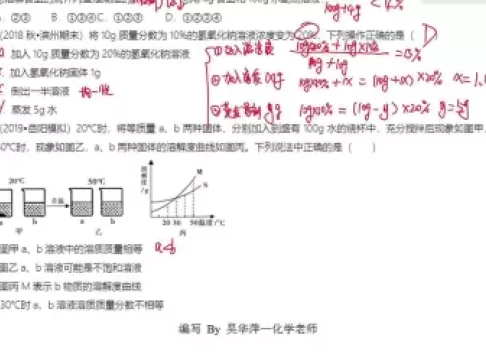 B. ①③④ C. ①②③ D. ①②③④
(2018 秋•滨州期末) 将 10g 质量分数为 10%的氢氧化钠溶液浓度变为 20%，下列操作正确的是（ D ）
加入 10g 质量分数为 20%的氢氧化钠溶液
①加入溶液
=15%
加入氢氧化钠固体 1g
②加入溶质 xg 10g×10%+x=(10g+x)×20%
倒出一半溶液 均一性
蒸发 5g 水
10g×10%=(10g-y)×20% y=5g
(2019•岳阳模拟) 20℃时，将等质量 a、b 两种固体，分别加入到盛有 100g 水的烧杯中，充分搅拌后现象如图甲，
50℃时，现象如图乙，a、b 两种固体的溶解度曲线如图丙。下列说法中正确的是（ ）
20℃ 50℃
升温
a b a b
甲 乙
溶解度/g
M
N
20 30 50 温度/℃
丙
图甲 a、b 溶液中的溶质质量相等 a<b
图乙 a、b 溶液可能是不饱和溶液
图丙 M 表示 b 物质的溶解度曲线
30℃时 a、b 溶液溶质质量分数不相等
编写 By 吴华萍—化学老师